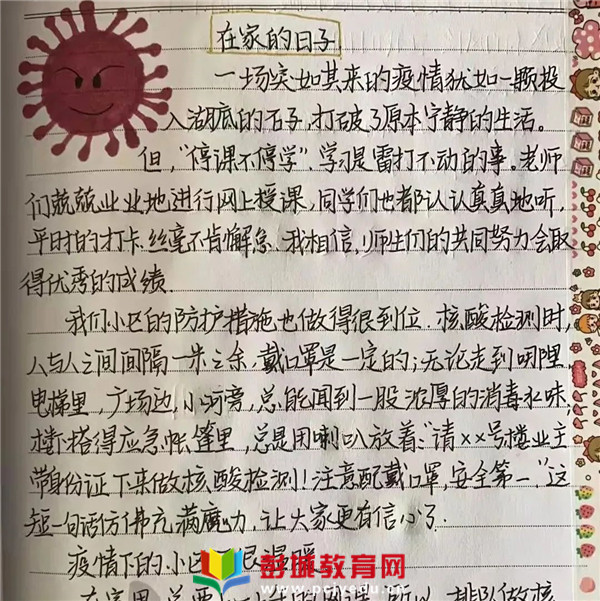 在家的日子
一场突如其来的疫情犹如一颗投
入湖底的石子,打破了原本宁静的生活。
但,“停课不停学”.学习是雷打不动的事。老师
们兢兢业业地进行网上授课,同学们也都认认真真地听,
平时的打卡,丝毫不肯懈怠.我相信,师生们的共同努力会取
得优秀的成绩.
我们小区的防护措施也做得很到位.核酸检测时,
人与人之间间隔一米之余,戴口罩是一定的;无论走到哪里,
电梯里,广场边,小河旁,总能闻到一股浓厚的消毒水味,
楼下搭得应急帐篷里,总是用喇叭放着:“请××号楼业主
带身份证下来做核酸检测!注意配戴口罩,安全第一.”这
短一句话仿佛充满魔力,让大家更有信心了.
疫情下的小区 很温暖
彭城教育网